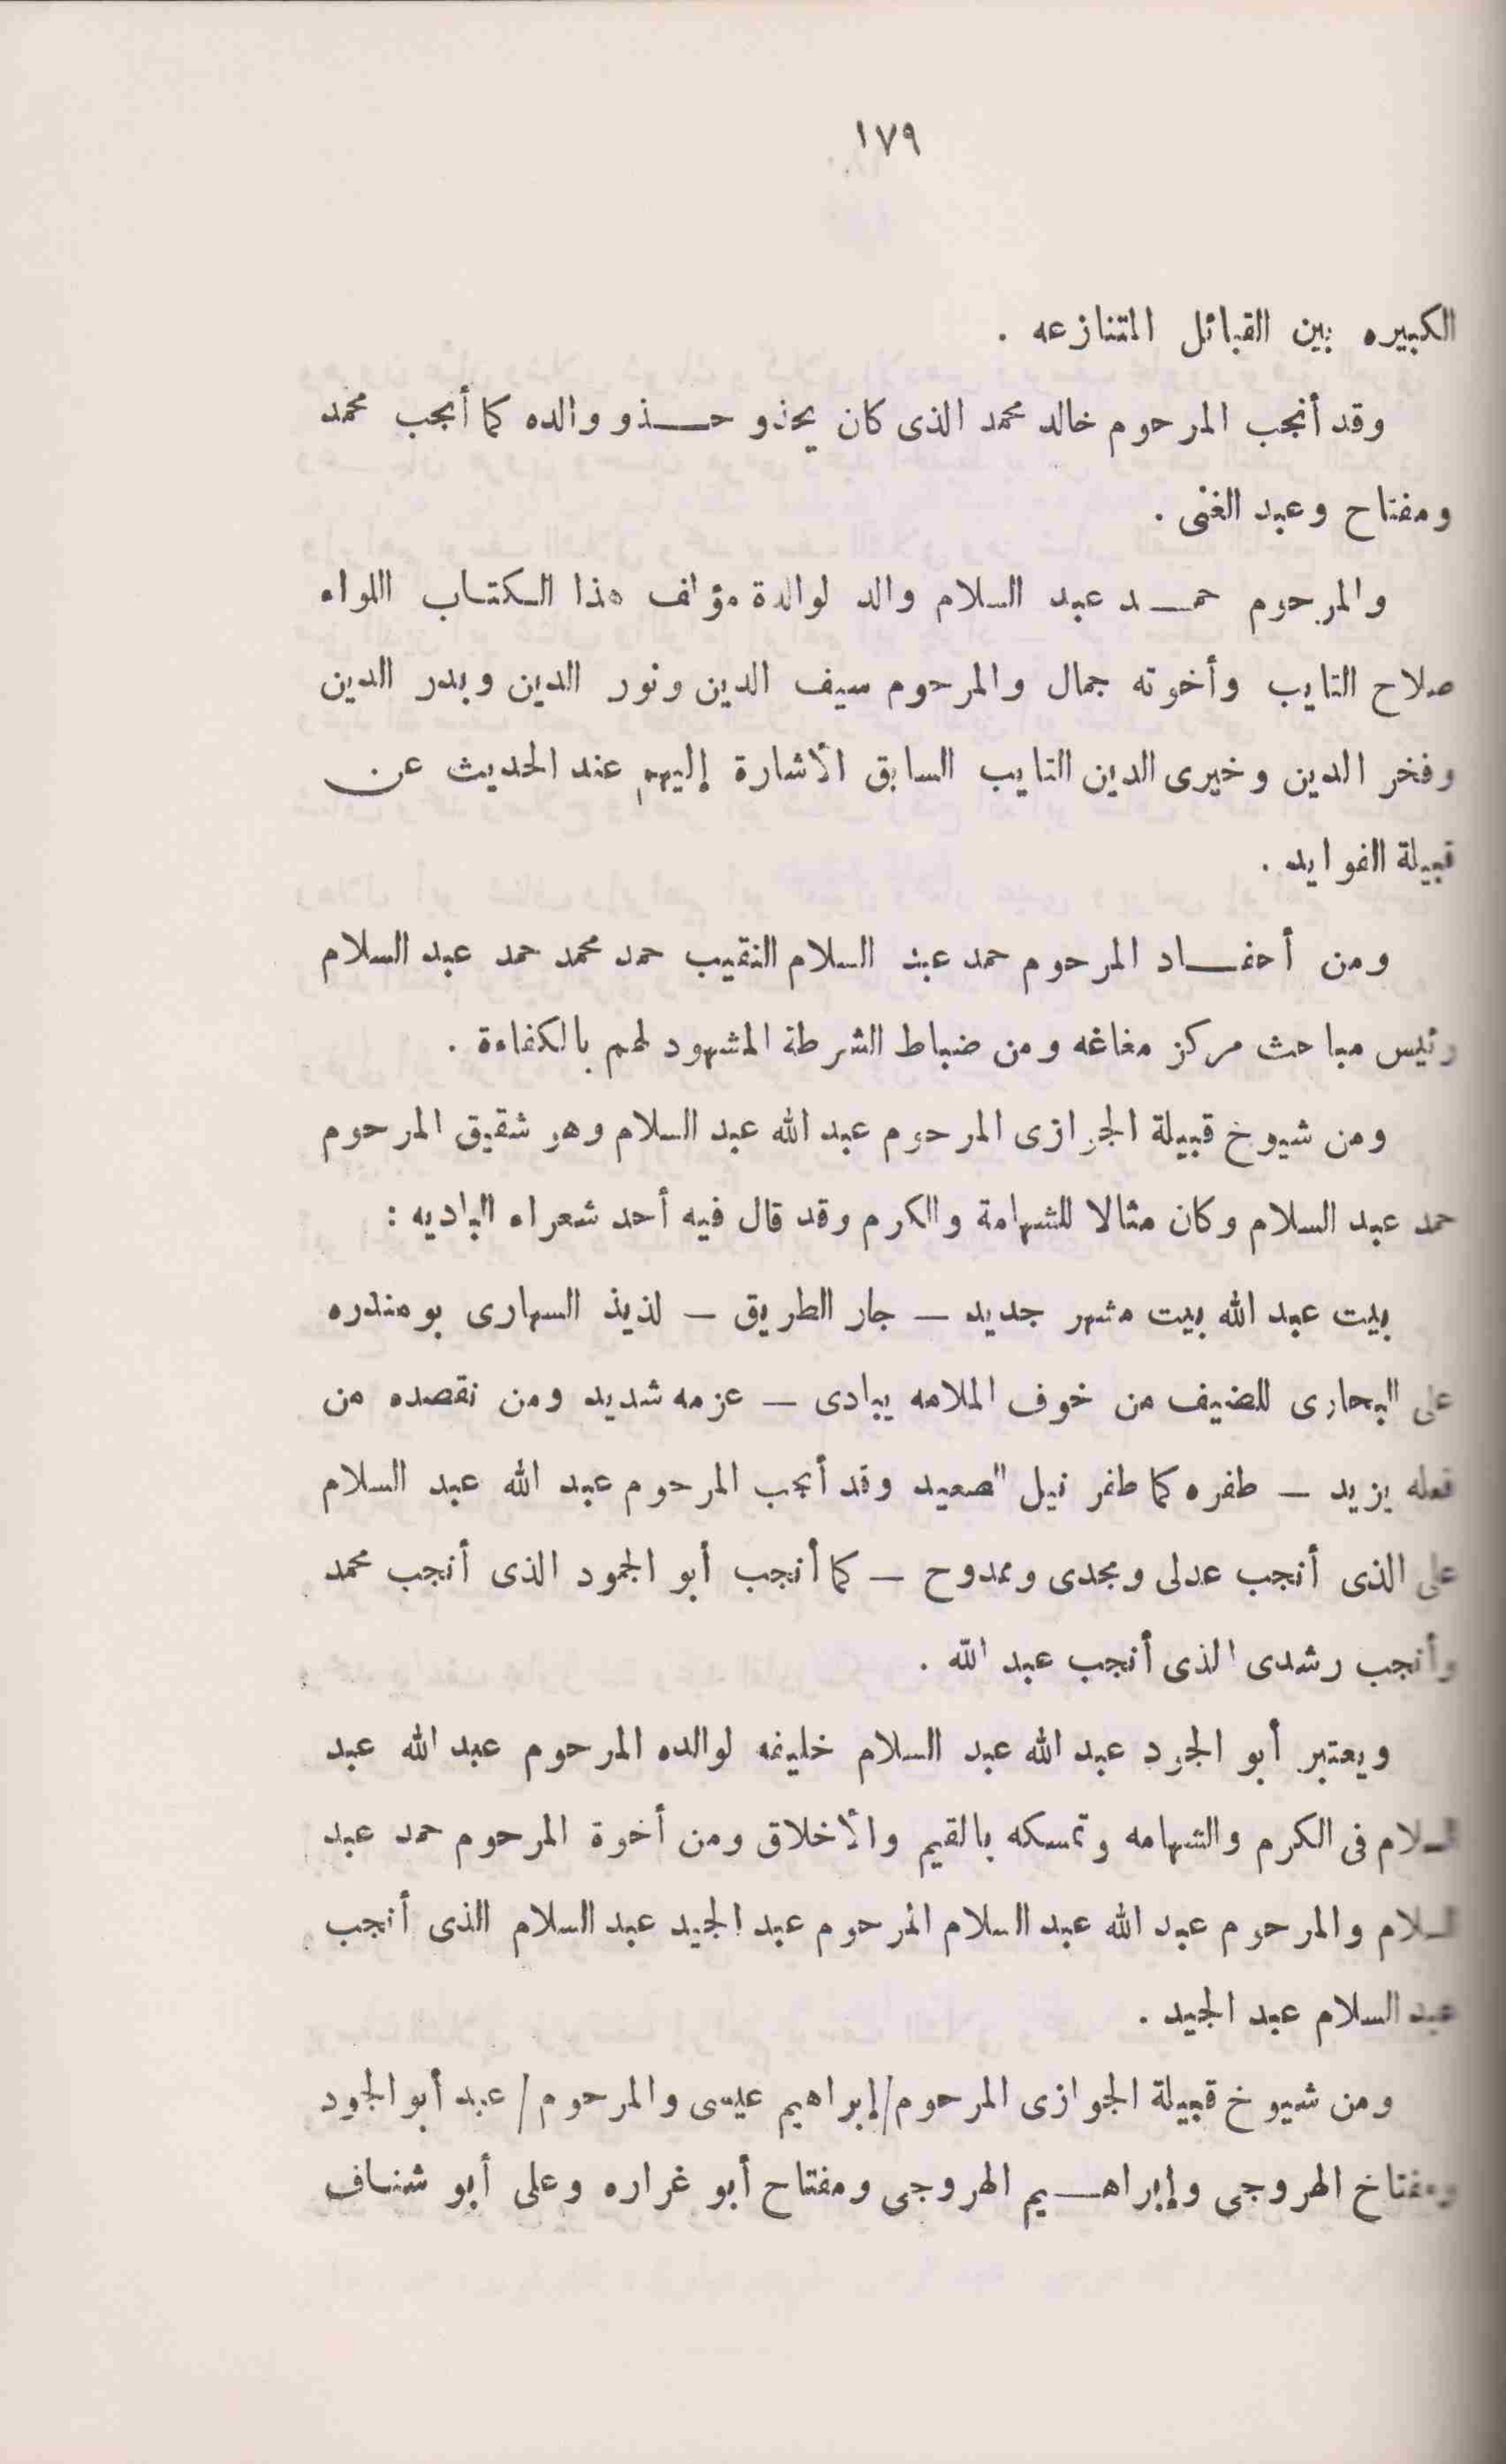 ١٧٩
الكبيره بين القبائل المتنازعه .
وقد أنجب المرحوم خالد محمد الذى كان يحذو حـــذو والده كما أنجب محمد
ومفتاح وعبد الغنى .
والمرحوم حمـــد عبد السلام والد لوالدة مؤلف هذا الـكتـاب اللواء
صلاح التايب وأخوته جمال والمرحوم سيف الدين ونور الدين وبدر الدين
وفخر الدين وخيرى الدين التايب السابق الأشارة إليهم عند الحديث عن
قبيلة الفوايد .
ومن أحفـــاد المرحوم حمد عبد السلام النقيب حمد محمد حمد عبد السلام
رئيس مباحث مركز مغاغه ومن ضباط الشرطة المشهود لهم بالكفاءة .
ومن شيوخ قبيلة الجوازى المرحوم عبد الله عبد السلام وهو شقيق المرحوم
حمد عبد السلام وكان مثالا للشهامة والكرم وقد قال فيه أحد شعراء الباديه :
بيت عبد الله بيت مشهر جديد – جار الطريق – لذيذ السهارى بو مندره
على البحارى للضيف من خوف الملامه يبادى – عزمه شديد ومن نقصده من
فعله يزيد – طفره كما طفر نيل الصعيد وقد أنجب المرحوم عبد الله عبد السلام
على الذى أنجب عدلى ومجدى وممدوح – كما أنجب أبو الجود الذى أنجب محمد
وأنجب رشدى الذى أنجب عبد الله .
ويعتبر أبو الجود عبد الله عبد السلام خليفه لوالده المرحوم عبد الله عبد
السلام فى الكرم والشهامه وتمسكه بالقيم والأخلاق ومن أخوة المرحوم حمد عبد
السلام والمرحوم عبد الله عبد السلام المرحوم عبد الجيد عبد السلام الذى أنجب
عبد السلام عبد الجيد .
ومن شيوخ قبيلة الجوازى المرحوم/إبراهيم عيسى والمرحوم/عبد أبو الجود
ومفتاخ الهروجى وإبراهـــيم الهروجى ومفتاح أبو غراره وعلى أبو شنـاف